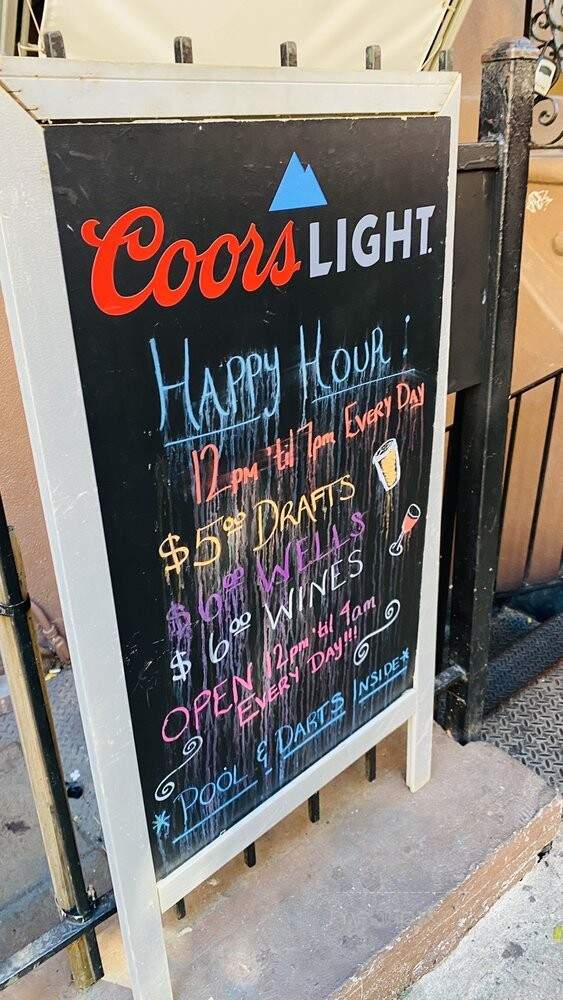 Coors LIGHT.
HAPPY HOUR!
12PM 'til 7pm EVERY DAY
$5.00 DRAFTS
$6.00 WELLS
$6.00 WINES
OPEN 12pm 'til 4am
EVERY DAY!!!
*POOL & DARTS INSIDE*